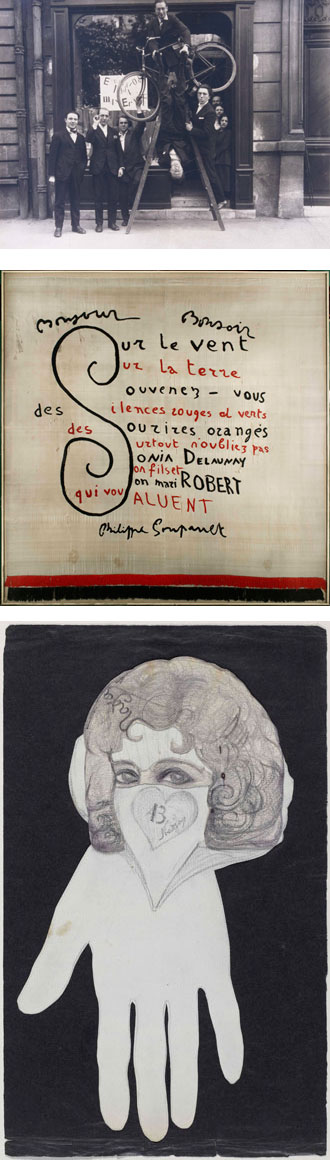 Bonjour Bonsoir
Sur le vent
ur la terre
ouvenez – vous
des ilences rouges et verts
des ourires orangés
urtout n'oubliez pas
ONIA DELAUNAY
on fils et
on mari ROBERT
qui vou ALUENT
Philippe Soupault
13